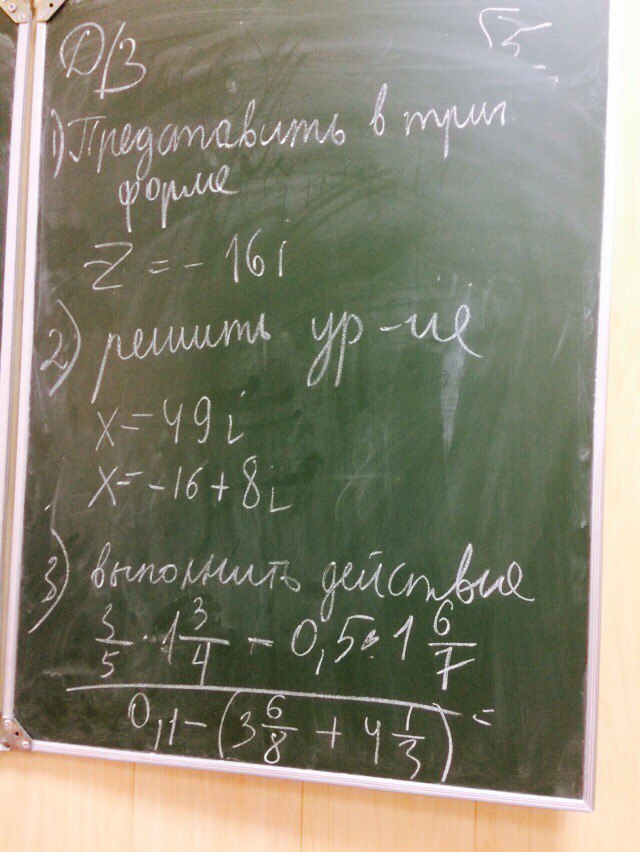 Д/З
√5
1) Представить в триг
форме
z = - 16 i
2) решить ур-ие
x = 49 i
x = -16 + 8i
3) выполнить действие
3/5 · 1 3/4 - 0,5 · 1 6/7
0,1 - (3 6/8 + 4 1/3) =